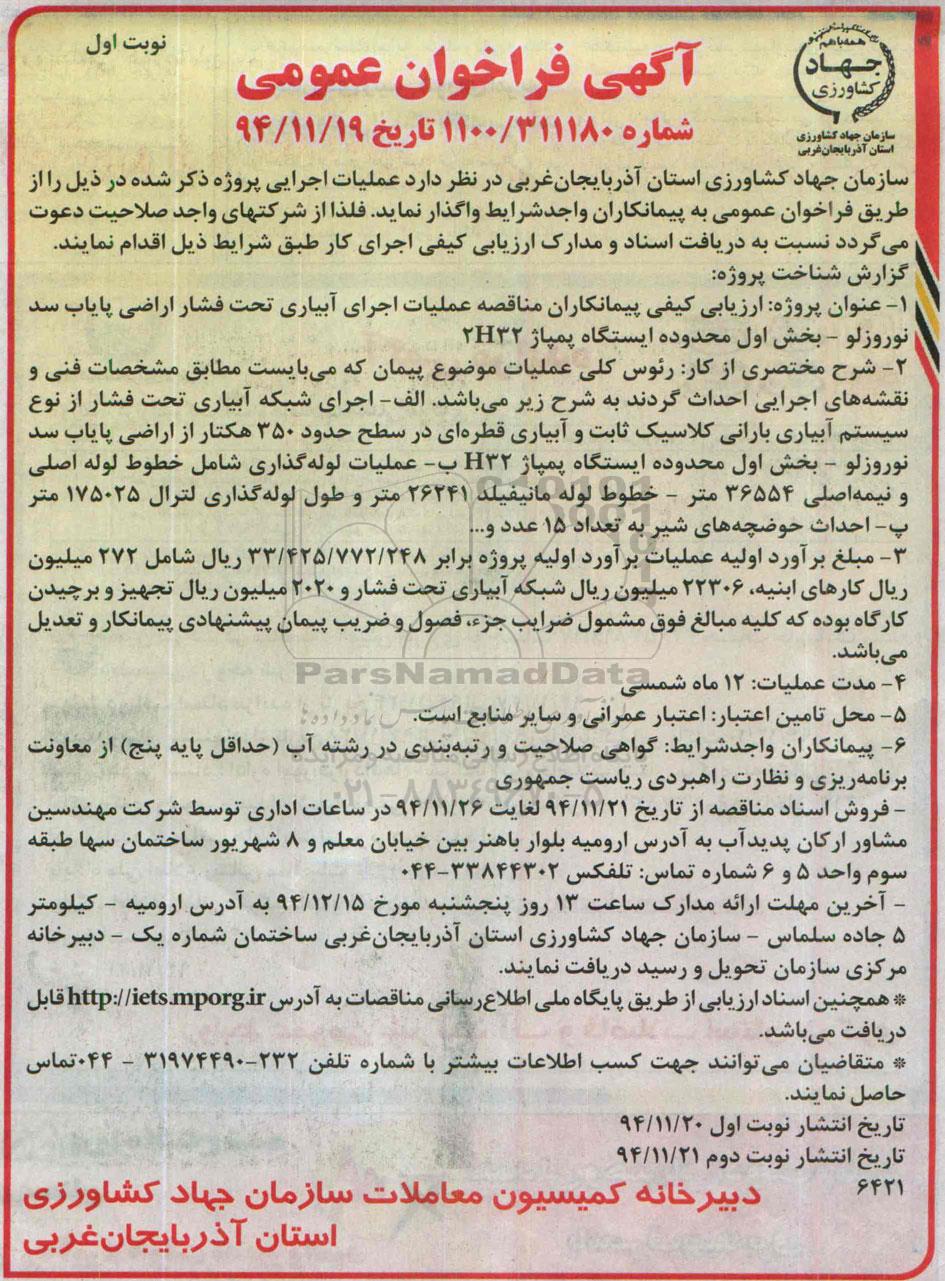 نوبت اول
همه با هم
جهاد
کشاورزی
سازمان جهاد کشاورزی
استان آذربایجان‌غربی
آگهی فراخوان عمومی
شماره ۱۱۰۰/۳۱۱۱۸۰ تاریخ ۹۴/۱۱/۱۹
سازمان جهاد کشاورزی استان آذربایجان‌غربی در نظر دارد عملیات اجرایی پروژه ذکر شده در ذیل را از
طریق فراخوان عمومی به پیمانکاران واجدشرایط واگذار نماید. فلذا از شرکتهای واجد صلاحیت دعوت
می‌گردد نسبت به دریافت اسناد و مدارک ارزیابی کیفی اجرای کار طبق شرایط ذیل اقدام نمایند.
گزارش شناخت پروژه:
۱- عنوان پروژه: ارزیابی کیفی پیمانکاران مناقصه عملیات اجرای آبیاری تحت فشار اراضی پایاب سد
نوروزلو - بخش اول محدوده ایستگاه پمپاژ ۲H۳۲
۲- شرح مختصری از کار: رئوس کلی عملیات موضوع پیمان که می‌بایست مطابق مشخصات فنی و
نقشه‌های اجرایی احداث گردند به شرح زیر می‌باشد. الف- اجرای شبکه آبیاری تحت فشار از نوع
سیستم آبیاری بارانی کلاسیک ثابت و آبیاری قطره‌ای در سطح حدود ۳۵۰ هکتار از اراضی پایاب سد
نوروزلو - بخش اول محدوده ایستگاه پمپاژ H۳۲ ب- عملیات لوله‌گذاری شامل خطوط لوله اصلی
و نیمه‌اصلی ۳۶۵۵۴ متر - خطوط لوله مانیفیلد ۲۶۲۴۱ متر و طول لوله‌گذاری لترال ۱۷۵۰۲۵ متر
پ- احداث حوضچه‌های شیر به تعداد ۱۵ عدد و...
۳- مبلغ برآورد اولیه عملیات برآورد اولیه پروژه برابر ۳۳/۴۲۵/۷۷۲/۲۴۸ ریال شامل ۲۷۲ میلیون
ریال کارهای ابنیه، ۲۲۳۰۶ میلیون ریال شبکه آبیاری تحت فشار و ۲۰۲۰ میلیون ریال تجهیز و برچیدن
کارگاه بوده که کلیه مبالغ فوق مشمول ضرایب جزء، فصول و ضریب پیمان پیشنهادی پیمانکار و تعدیل
می‌باشد.
ParsNamadData
۴- مدت عملیات: ۱۲ ماه شمسی
۵- محل تامین اعتبار: اعتبار عمرانی و سایر منابع است.
۶- پیمانکاران واجدشرایط: گواهی صلاحیت و رتبه‌بندی در رشته آب (حداقل پایه پنج) از معاونت
برنامه‌ریزی و نظارت راهبردی ریاست جمهوری
- فروش اسناد مناقصه از تاریخ ۹۴/۱۱/۲۱ لغایت ۹۴/۱۱/۲۶ در ساعات اداری توسط شرکت مهندسین
مشاور ارکان پدیدآب به آدرس ارومیه بلوار باهنر بین خیابان معلم و ۸ شهریور ساختمان سها طبقه
سوم واحد ۵ و ۶ شماره تماس: تلفکس ۳۳۸۴۴۳۰۲-۰۴۴
- آخرین مهلت ارائه مدارک ساعت ۱۳ روز پنجشنبه مورخ ۹۴/۱۲/۱۵ به آدرس ارومیه - کیلومتر
۵ جاده سلماس - سازمان جهاد کشاورزی استان آذربایجان‌غربی ساختمان شماره یک - دبیرخانه
مرکزی سازمان تحویل و رسید دریافت نمایند.
* همچنین اسناد ارزیابی از طریق پایگاه ملی اطلاع‌رسانی مناقصات به آدرس http://iets.mporg.ir قابل
دریافت می‌باشد.
* متقاضیان می‌توانند جهت کسب اطلاعات بیشتر با شماره تلفن ۲۳۲-۳۱۹۷۴۴۹۰ - ۰۴۴تماس
حاصل نمایند.
تاریخ انتشار نوبت اول ۹۴/۱۱/۲۰
تاریخ انتشار نوبت دوم ۹۴/۱۱/۲۱
۶۴۲۱
دبیرخانه کمیسیون معاملات سازمان جهاد کشاورزی
استان آذربایجان‌غربی